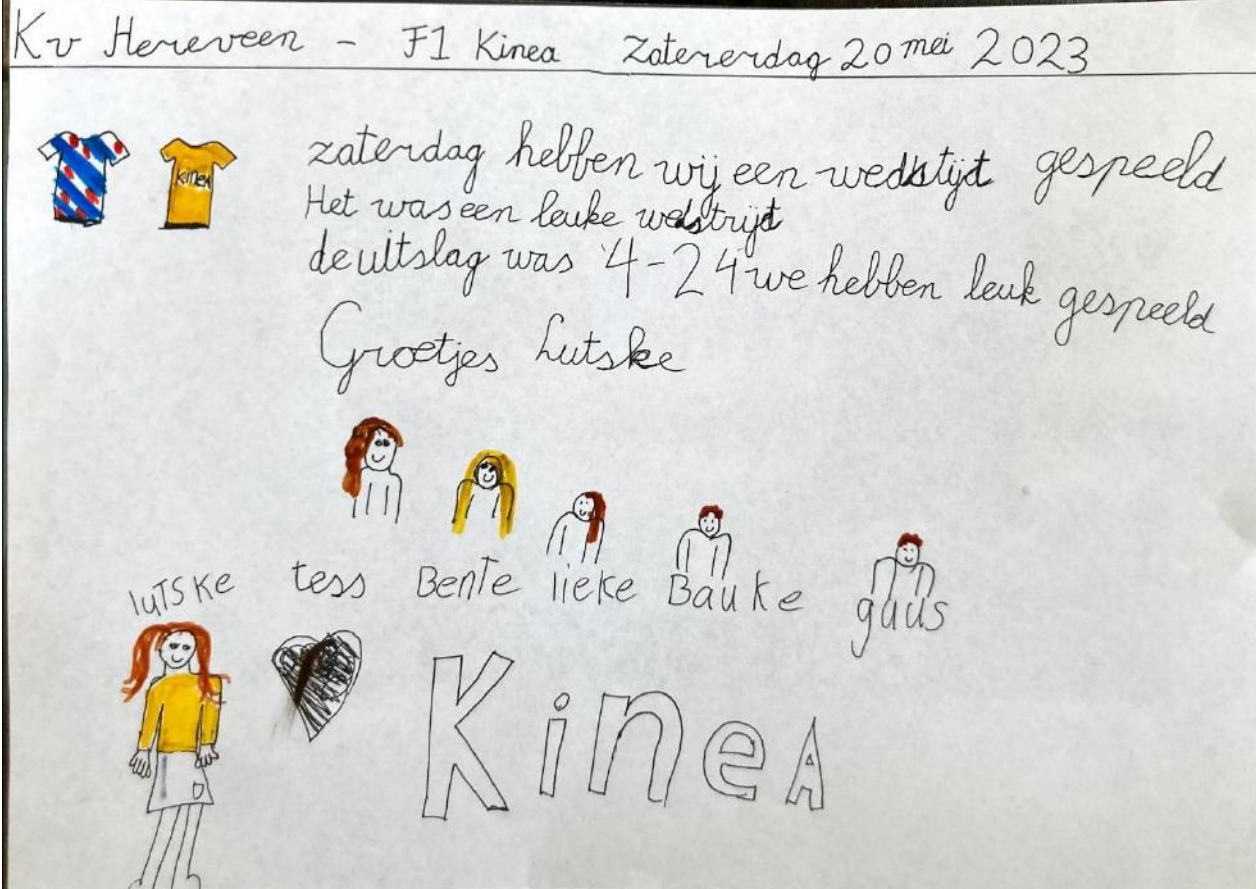 Kv Hereveen - F1 Kinea Zatererdag 20 mei 2023
KINEA
zaterdag hebben wij een wedstijt gespeeld
Het was een leuke wedstrijt
de uitslag was 4-24 we hebben leuk gespeeld
Groetjes Lutske
lutske tess Bente lieke Bauke guus
KineA